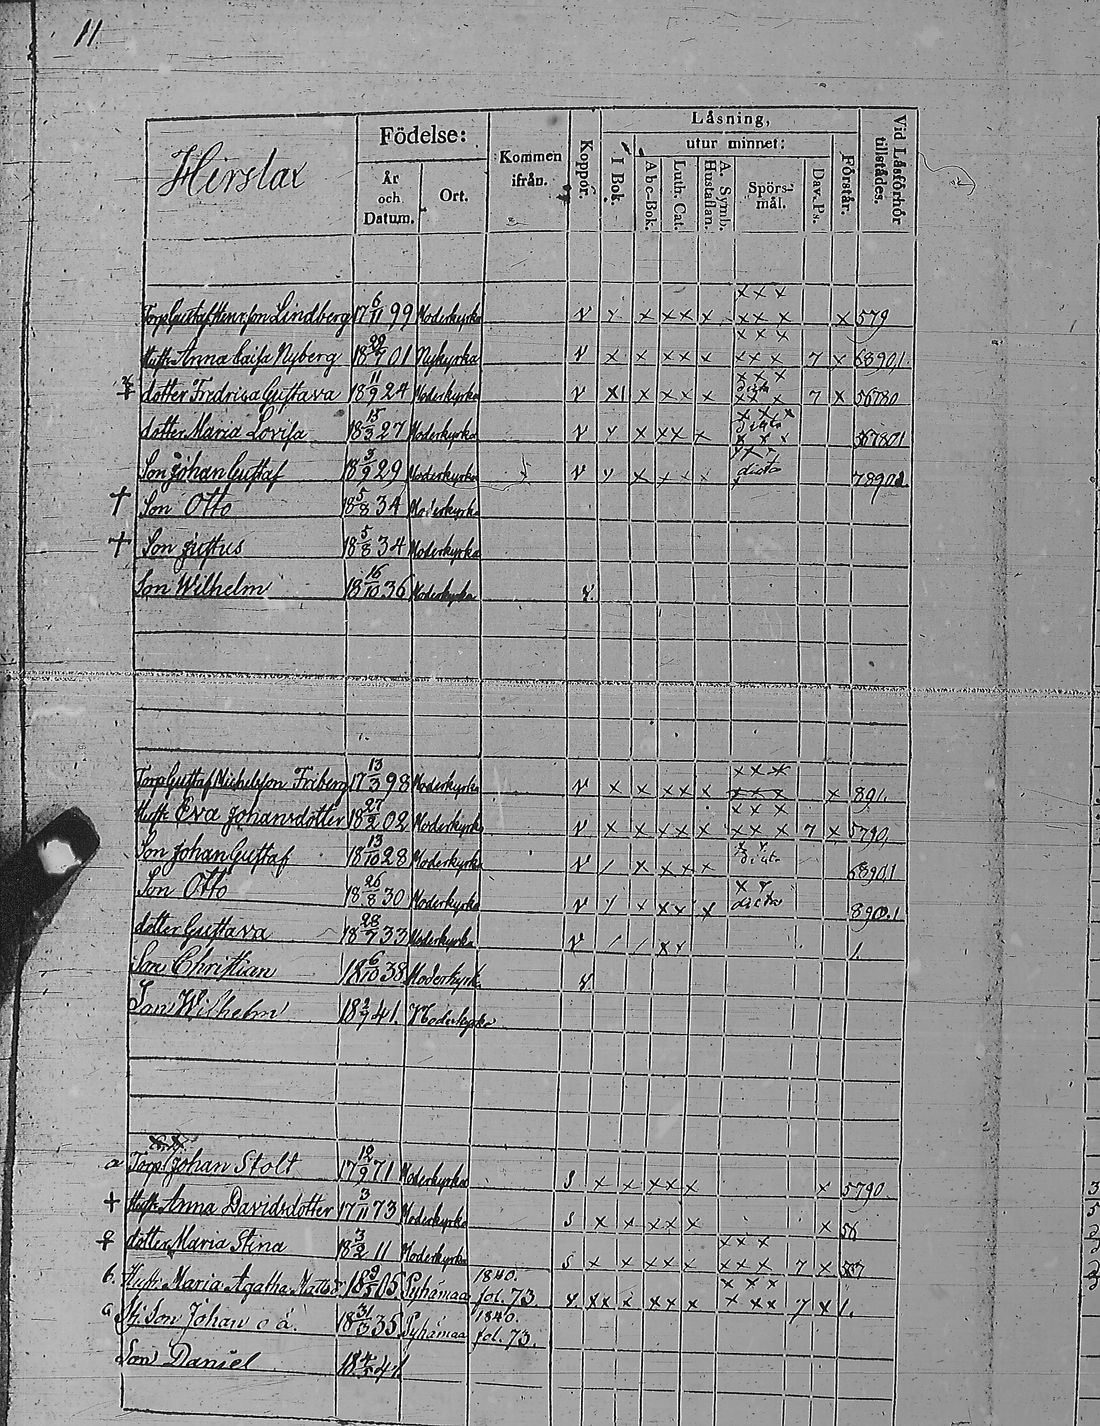 11.
Hirslax
Födelse:
År och Datum.
Ort.
Kommen ifrån.
Koppor.
Läsning,
utur minnet:
I Bok.
Abc-Bok.
Luth. Cat.
A. Symb. Hustaflan.
Spörs-mål.
Dav. Ps.
Förstår.
Vid Läsförhör tillstädes.
Torp Gustaf Henr:son Lindberg 17 6/11 99 Moderkyrka v x x x x x x x x x x x x 579
Hustr Anna Caisa Nyberg 18 01 Nykyrka v x x x x x x x x x x x 7 x 68901.
dotter Fredrica Gustava 18 11/9 24 Moderkyrka v x x x x x x x x dicto x x x 7 x 56780
dotter Maria Lovisa 18 15/3 27 Moderkyrka v x x x x x x x dicto x x x 567801
Son Johan Gustaf 18 3/9 29 Moderkyrka v x x x x x x x dicto
† Son Otto 18 5/8 34 Moderkyrka
† Son Justus 18 5/8 34 Moderkyrka
Son Wilhelm 18 16/10 36 Moderkyrka v.
Torp Gustaf Michelsson Friberg 17 13/3 98 Moderkyrka v x x x x x x x x x x x x 891.
Hustr Eva Johansdotter 18 27/2 02 Moderkyrka v x x x x x x x x x x x 7 x 5790,
Son Johan Gustaf 18 13/10 28 Moderkyrka v x x x x x x dicto 68901
Son Otto 18 26/8 30 Moderkyrka v x x x x x x dicto 890.1
dotter Gustava 18 28/7 33 Moderkyrka v / / x x 1.
Son Christian 18 6/10 38 Moderkyrk. v.
Son Wilhelm 18 2/9 41. Moderkyrka
a Torp Johan Stolt 17 12/9 71 Moderkyrka s x x x x x x 5790
† Hustr Anna Davidsdotter 17 3/11 73 Moderkyrka s x x x x x x 56
dotter Maria Stina 18 3/2 11 Moderkyrka s x x x x x x x x x x x 7 x 567
b. Hustr. Maria Agatha 05 Pyhämaa 1840. fol. 73. v. x x x x x x x x x x x x 7 x 1.
Son Johan o ä. 18 31/3 35 Pyhämaa 1840. fol. 73.
Son Daniel 18 41